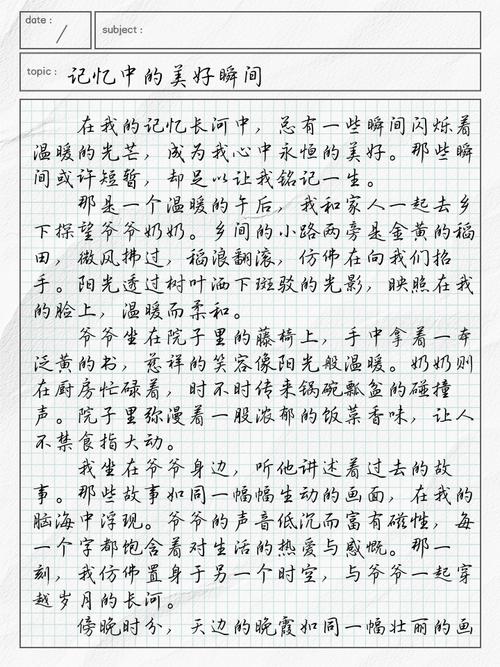 date :
subject :
topic : 记忆中的美好瞬间
在我的记忆长河中，总有一些瞬间闪烁着
温暖的光芒，成为我心中永恒的美好。那些瞬
间或许短暂，却足以让我铭记一生。
那是一个温暖的午后，我和家人一起去乡
下探望爷爷奶奶。乡间的小路两旁是金黄的稻
田，微风拂过，稻浪翻滚，仿佛在向我们招
手。阳光透过树叶洒下斑驳的光影，映照在我
的脸上，温暖而柔和。
爷爷坐在院子里的藤椅上，手中拿着一本
泛黄的书，慈祥的笑容像阳光般温暖。奶奶则
在厨房忙碌着，时不时传来锅碗瓢盆的碰撞
声。院子里弥漫着一股浓郁的饭菜香味，让人
不禁食指大动。
我坐在爷爷身边，听他讲述着过去的故
事。那些故事如同一幅幅生动的画面，在我的
脑海中浮现。爷爷的声音低沉而富有磁性，每
一个字都饱含着对生活的热爱与感慨。那一
刻，我仿佛置身于另一个时空，与爷爷一起穿
越岁月的长河。
傍晚时分，天边的晚霞如同一幅壮丽的画